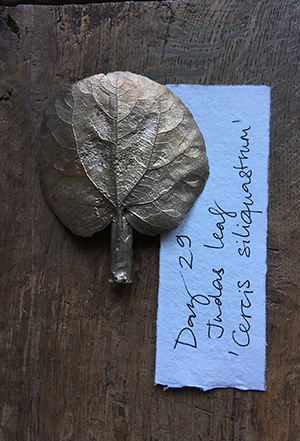 Day 29
Judas leaf
'Cercis siliquastrum'